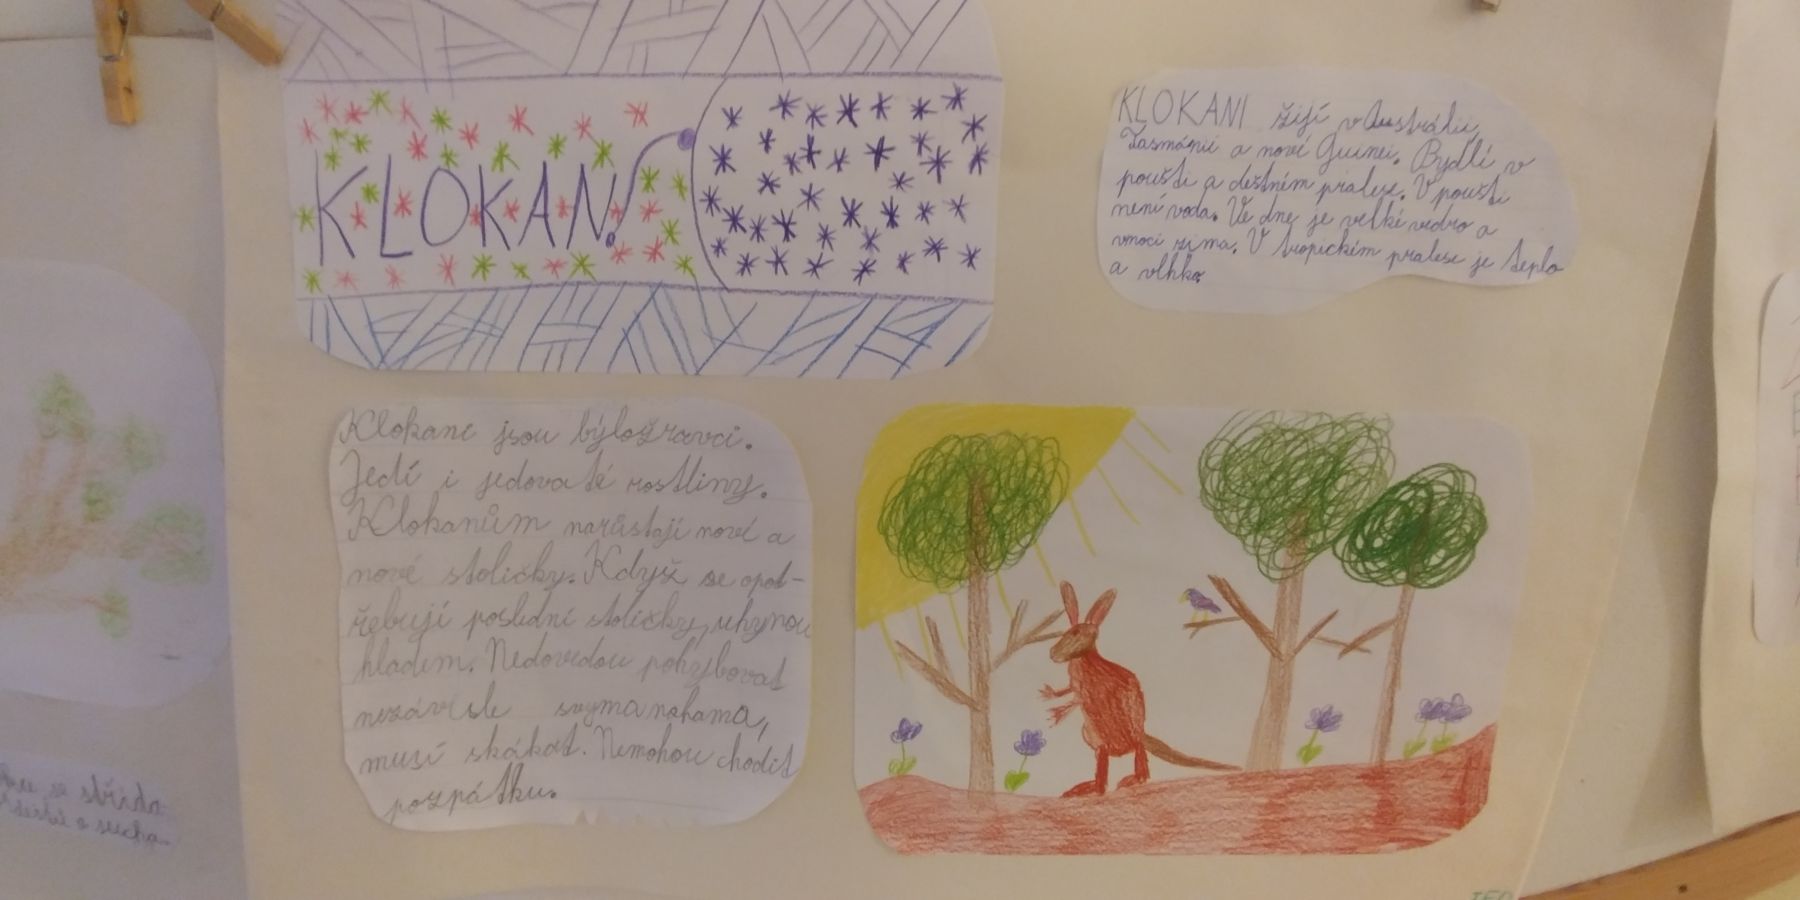 KLOKAN
KLOKANI žijí v Austrálii,
Tasmánii a nové Guinei. Bydlí v
poušti a deštném pralese. V poušti
není voda. Ve dne je velké vedro a
vnoci zima. V tropickém pralese je teplo
a vlhko.
Klokani jsou býložravci.
Jedí i jedovaté rostliny.
Klokanům narůstají nové a
nové stoličky. Když se opot-
řebují poslední stoličky, uhynou
hladem. Nedovedou pohybovat
nezávisle svýma nohama,
musí skákat. Nemohou chodit
pozpátku.